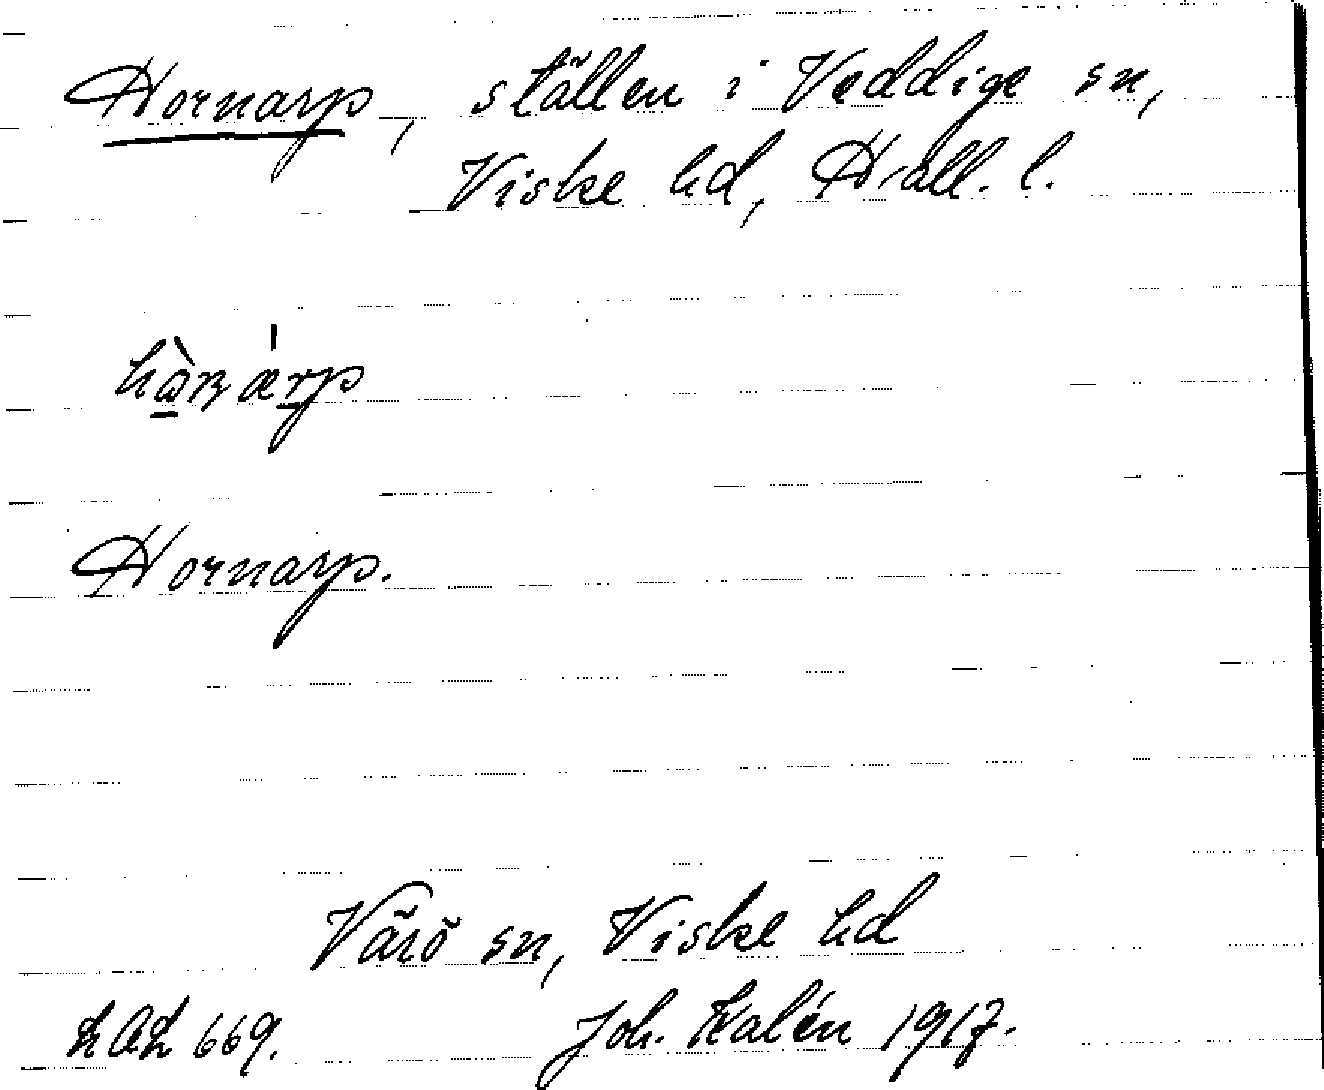 Hornarp, ställen i Veddige sn,
Viske hd, Hall. l.
Hornarp.
Värö sn, Viske hd
669. Joh. Kalén 1917.